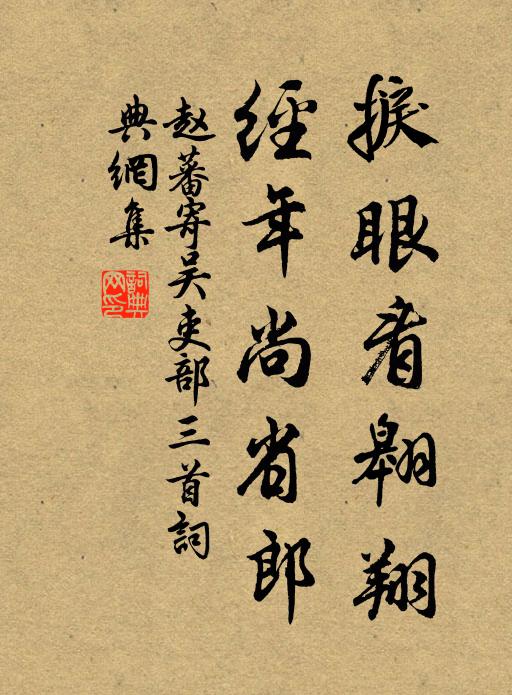 捩眼看翱翔
經年尚省郎
赵蕃寄吴吏部三首詞
典網集
詞典
网印